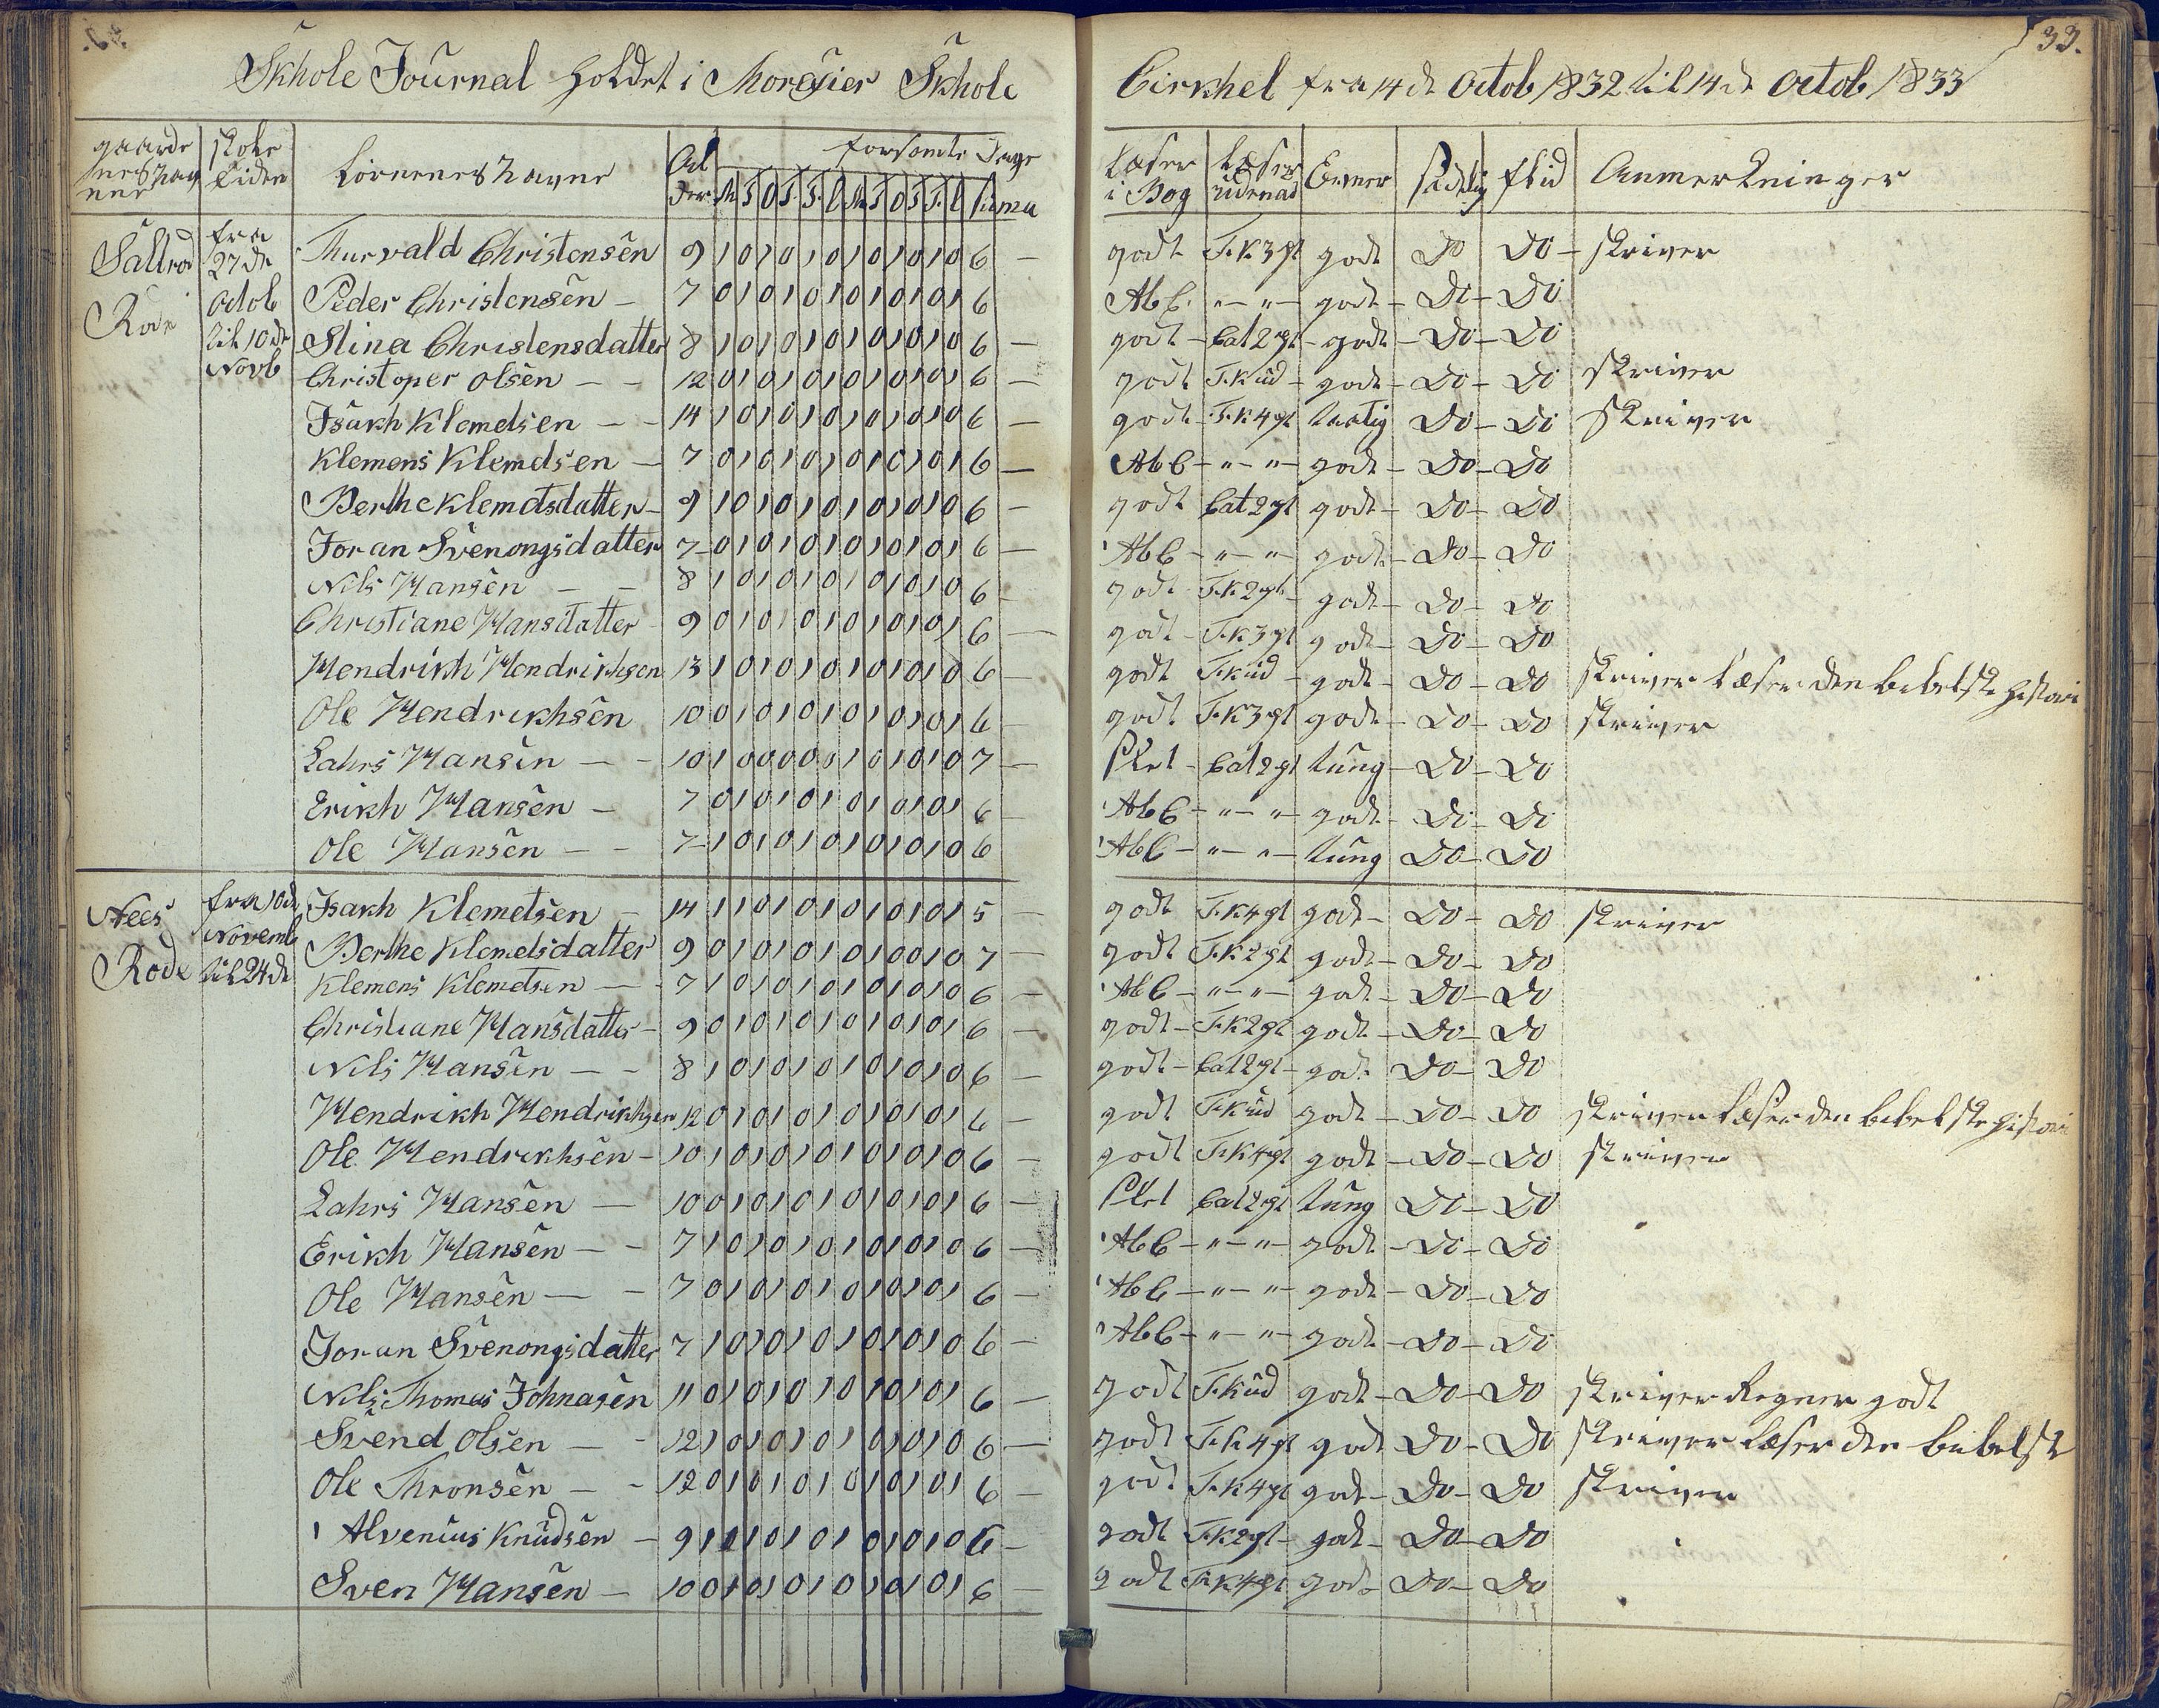 33.
Skhole Journal holdet i Morgier Skhole Cirkhel fra 14de Octob 1832 til 14de Octob 1833
gaardenes navne | Skoletiden | børnenes navne | Alder | forsømte Dage | M T O T F L M T O T F L Suma | Læser i Bog | Læser udenad | Evner | Sædelig | flid | Anmerkninger
Saltrød Rode | fra 27de Octob til 10de Novb
Thurvald Christensen 9 1 0 1 0 1 0 1 0 1 0 1 0 6 — godt F.K 3 pt godt Do Do — skriver
Peder Christensen — 7 0 1 0 1 0 1 0 1 0 1 0 1 6 AbC. " — " — godt — Do — Do
Stina Christensdatter 8 1 0 1 0 1 0 1 0 1 0 1 0 6 — godt — Cat 2 pt — godt — Do — Do
Christoper Olsen — — 12 0 1 0 1 0 1 0 1 0 1 0 1 6 — godt F.K ud — godt — Do — Do skriver
Isakh Klemetsen — — 14 1 0 1 0 1 0 1 0 1 0 1 0 6 — godt — F.K 4 pt hastig Do — Do skriver
Klemens Klemetsen — 7 0 1 0 1 0 1 0 1 0 1 0 1 6 — AbC — " — " — godt — Do — Do
Berthe Klemetsdatter — 9 1 0 1 0 1 0 1 0 1 0 1 0 6 — godt Cat 2 pt godt — Do — Do
Joran Svenongsdatter 7 — 0 1 0 1 0 1 0 1 0 1 0 1 6 — AbC — " — " — godt — Do — Do
Nils Hansen — — 8 1 0 1 0 1 0 1 0 1 0 1 0 6 — godt F.K 2 pt — godt — Do — Do
Christiane Hansdatter 9 0 1 0 1 0 1 0 1 0 1 0 1 6 — godt — F.K 3 pt godt — Do — Do
Hendrikh Hendrikhsen 13 1 0 1 0 1 0 1 0 1 0 1 0 6 — godt F.K ud — godt — Do — Do skriver læser den bibelske histori
Ole Hendrikhsen 10 0 1 0 1 0 1 0 1 0 1 0 1 6 — godt F.K 3 pt godt — Do — Do skriver
Lahrs Hansen — — 10 1 0 0 0 0 0 1 0 1 0 1 0 7 — slet — Cat 2 pt tung — Do — Do
Erikh Hansen — 7 0 1 0 1 0 1 0 1 0 1 0 1 6 — AbC — " — " — godt — Do — Do
Ole Hansen — — 7 — 1 0 1 0 1 0 1 0 1 0 1 0 6 AbC — " — " — tung Do — Do
Nees Rode | fra 10de Novemb til 24de
Isakh Klemetsen — 14 1 1 0 1 0 1 0 1 0 1 0 1 5 — godt F.K 4 pt godt — Do — Do skriver
Berthe Klemetsdatter 9 0 1 0 1 0 1 0 1 0 0 1 0 7 — godt F.K 2 pt godt — Do — Do
Klemens Klemetsen — 7 1 0 1 0 1 0 1 0 1 0 1 0 6 — AbC — " — " — godt — Do — Do
Christiane Hansdatter — 9 0 1 0 1 0 1 0 1 0 1 0 1 6 — godt — F.K 2 pt godt — Do — Do
Nils Hansen — — 8 1 0 1 0 1 0 1 0 1 0 1 0 6 — godt — Cat 2 pt — godt Do — Do
Hendrikh Hendrikhsen 12 0 1 0 1 0 1 0 1 0 1 0 1 6 — godt F.K ud godt — Do — Do skriver læser den bibelske histori
Ole Hendrikhsen — 10 1 0 1 0 1 0 1 0 1 0 1 0 6 — godt F.K 4 pt godt — Do — Do skriver
Lahrs Hansen — 10 0 1 0 1 0 1 0 1 0 1 0 1 6 — slet Cat 2 pt tung Do — Do
Erikh Hansen — — 7 1 0 1 0 1 0 1 0 1 0 1 0 6 — AbC — " — " — godt — Do — Do
Ole Hansen — — 7 0 1 0 1 0 1 0 1 0 1 0 1 6 — AbC — " — " — godt — Do — Do
Joran Svenongsdatter 7 1 0 1 0 1 0 1 0 1 0 1 0 6 — AbC — " — " — godt — Do — Do
Nils Thomas Johnasen 11 0 1 0 1 0 1 0 1 0 1 0 1 6 — godt F.K ud godt — Do — Do skriver Regner godt
Svend Olsen — — 12 1 0 1 0 1 0 1 0 1 0 1 0 6 — godt F.K 4 pt godt Do — Do skriver læser den bibelsk
Ole Thronsen — — 12 0 1 0 1 0 1 0 1 0 1 0 1 6 — godt F.K 4 pt godt — Do — Do skriver
Alvenius Knudsen — 9 1 1 0 1 0 1 0 1 0 1 0 6 — godt F.K 2 pt — godt — Do — Do
Sven Hansen — 10 0 1 0 1 0 1 0 1 0 1 0 1 6 — godt F.K 4 pt godt — Do — Do